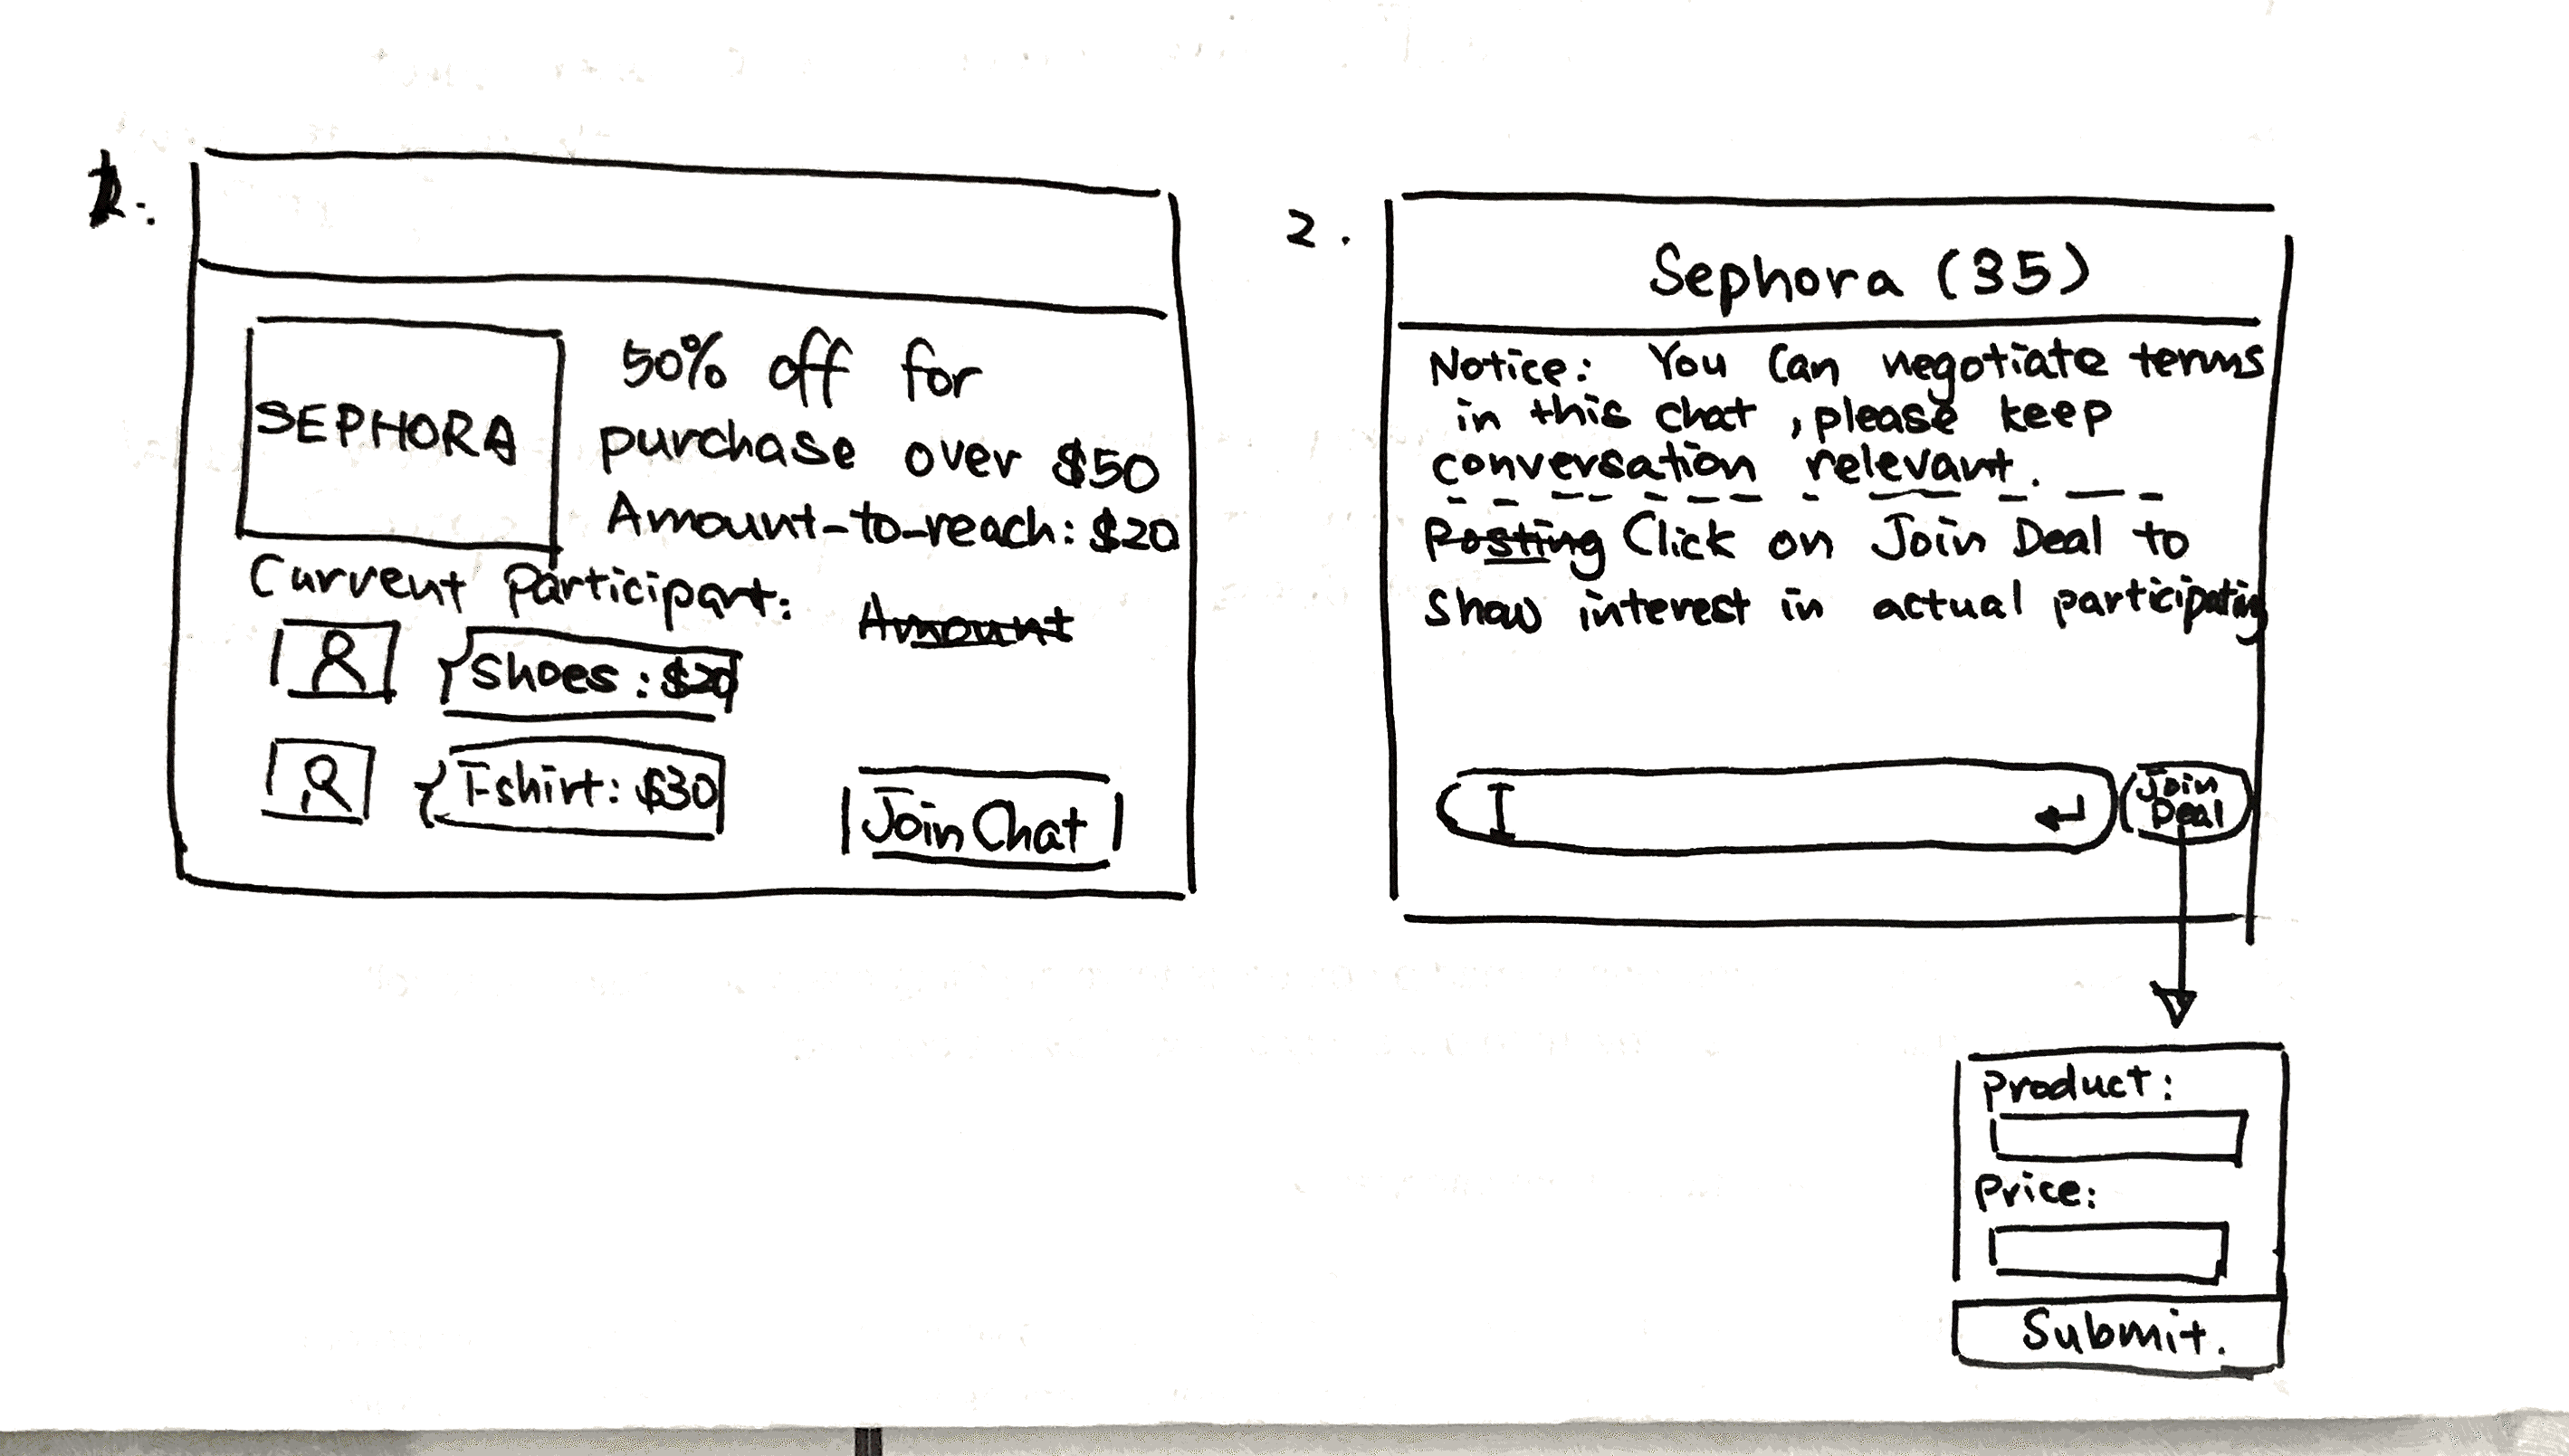 1.
SEPHORA
50% off for
purchase over $50
Amount-to-reach: $20
Current Participant:
Amount
Shoes: $20
T-shirt: $30
Join Chat
2.
Sephora (35)
Notice: You Can negotiate terms
in this chat, please keep
conversation relevant.
Posting Click on Join Deal to
show interest in actual participating
Join
Deal
Product:
Price:
Submit.